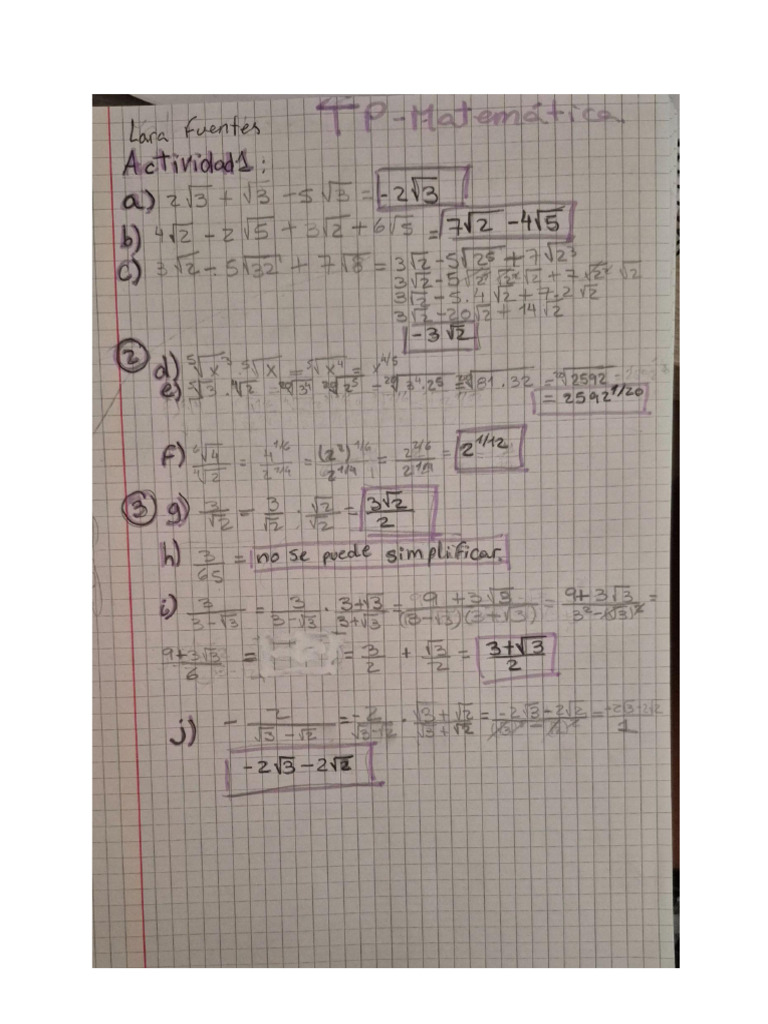 TP-Matemática.
Lara Fuentes
Actividad 1:
a) 2√3 + √3 - 5√3 = -2√3
b) 4√2 - 2√5 + 3√2 + 6√5 = 7√2 - 4√5
c) 3√2 - 5√32 + 7√8 = 3√2 - 5√2⁵ + 7√2³
3√2 - 5√2² √2² √2 + 7√2² √2
3√2 - 5.4√2 + 7.2√2
3√2 - 20√2 + 14√2
-3√2
② d) ⁵√x³ . ⁵√x = ⁵√x⁴ = x^4/5
e) ⁵√3 . ⁴√2 = ²⁰√3⁴ ²⁰√2⁵ = ²⁰√3⁴.2⁵ = ²⁰√81.32 = ²⁰√2592
= 2592^1/20
f) ⁶√4 / ⁴√2 = 4^1/6 / 2^1/4 = (2²)^1/6 / 2^1/4 = 2^2/6 / 2^1/4 = 2^1/12
③ g) 3/√2 = 3/√2 . √2/√2 = 3√2/2
h) 3/65 = no se puede simplificar.
i) 3/(3-√3) = 3/(3-√3) . (3+√3)/(3+√3) = (9+3√3)/((3-√3)(3+√3)) = (9+3√3)/(3²-(√3)²) =
(9+3√3)/6 = = 3/2 + √3/2 = (3+√3)/2
j) - 2/(√3-√2) = -2/(√3-√2) . (√3+√2)/(√3+√2) = (-2√3-2√2)/ = (-2√3-2√2)/1
-2√3-2√2